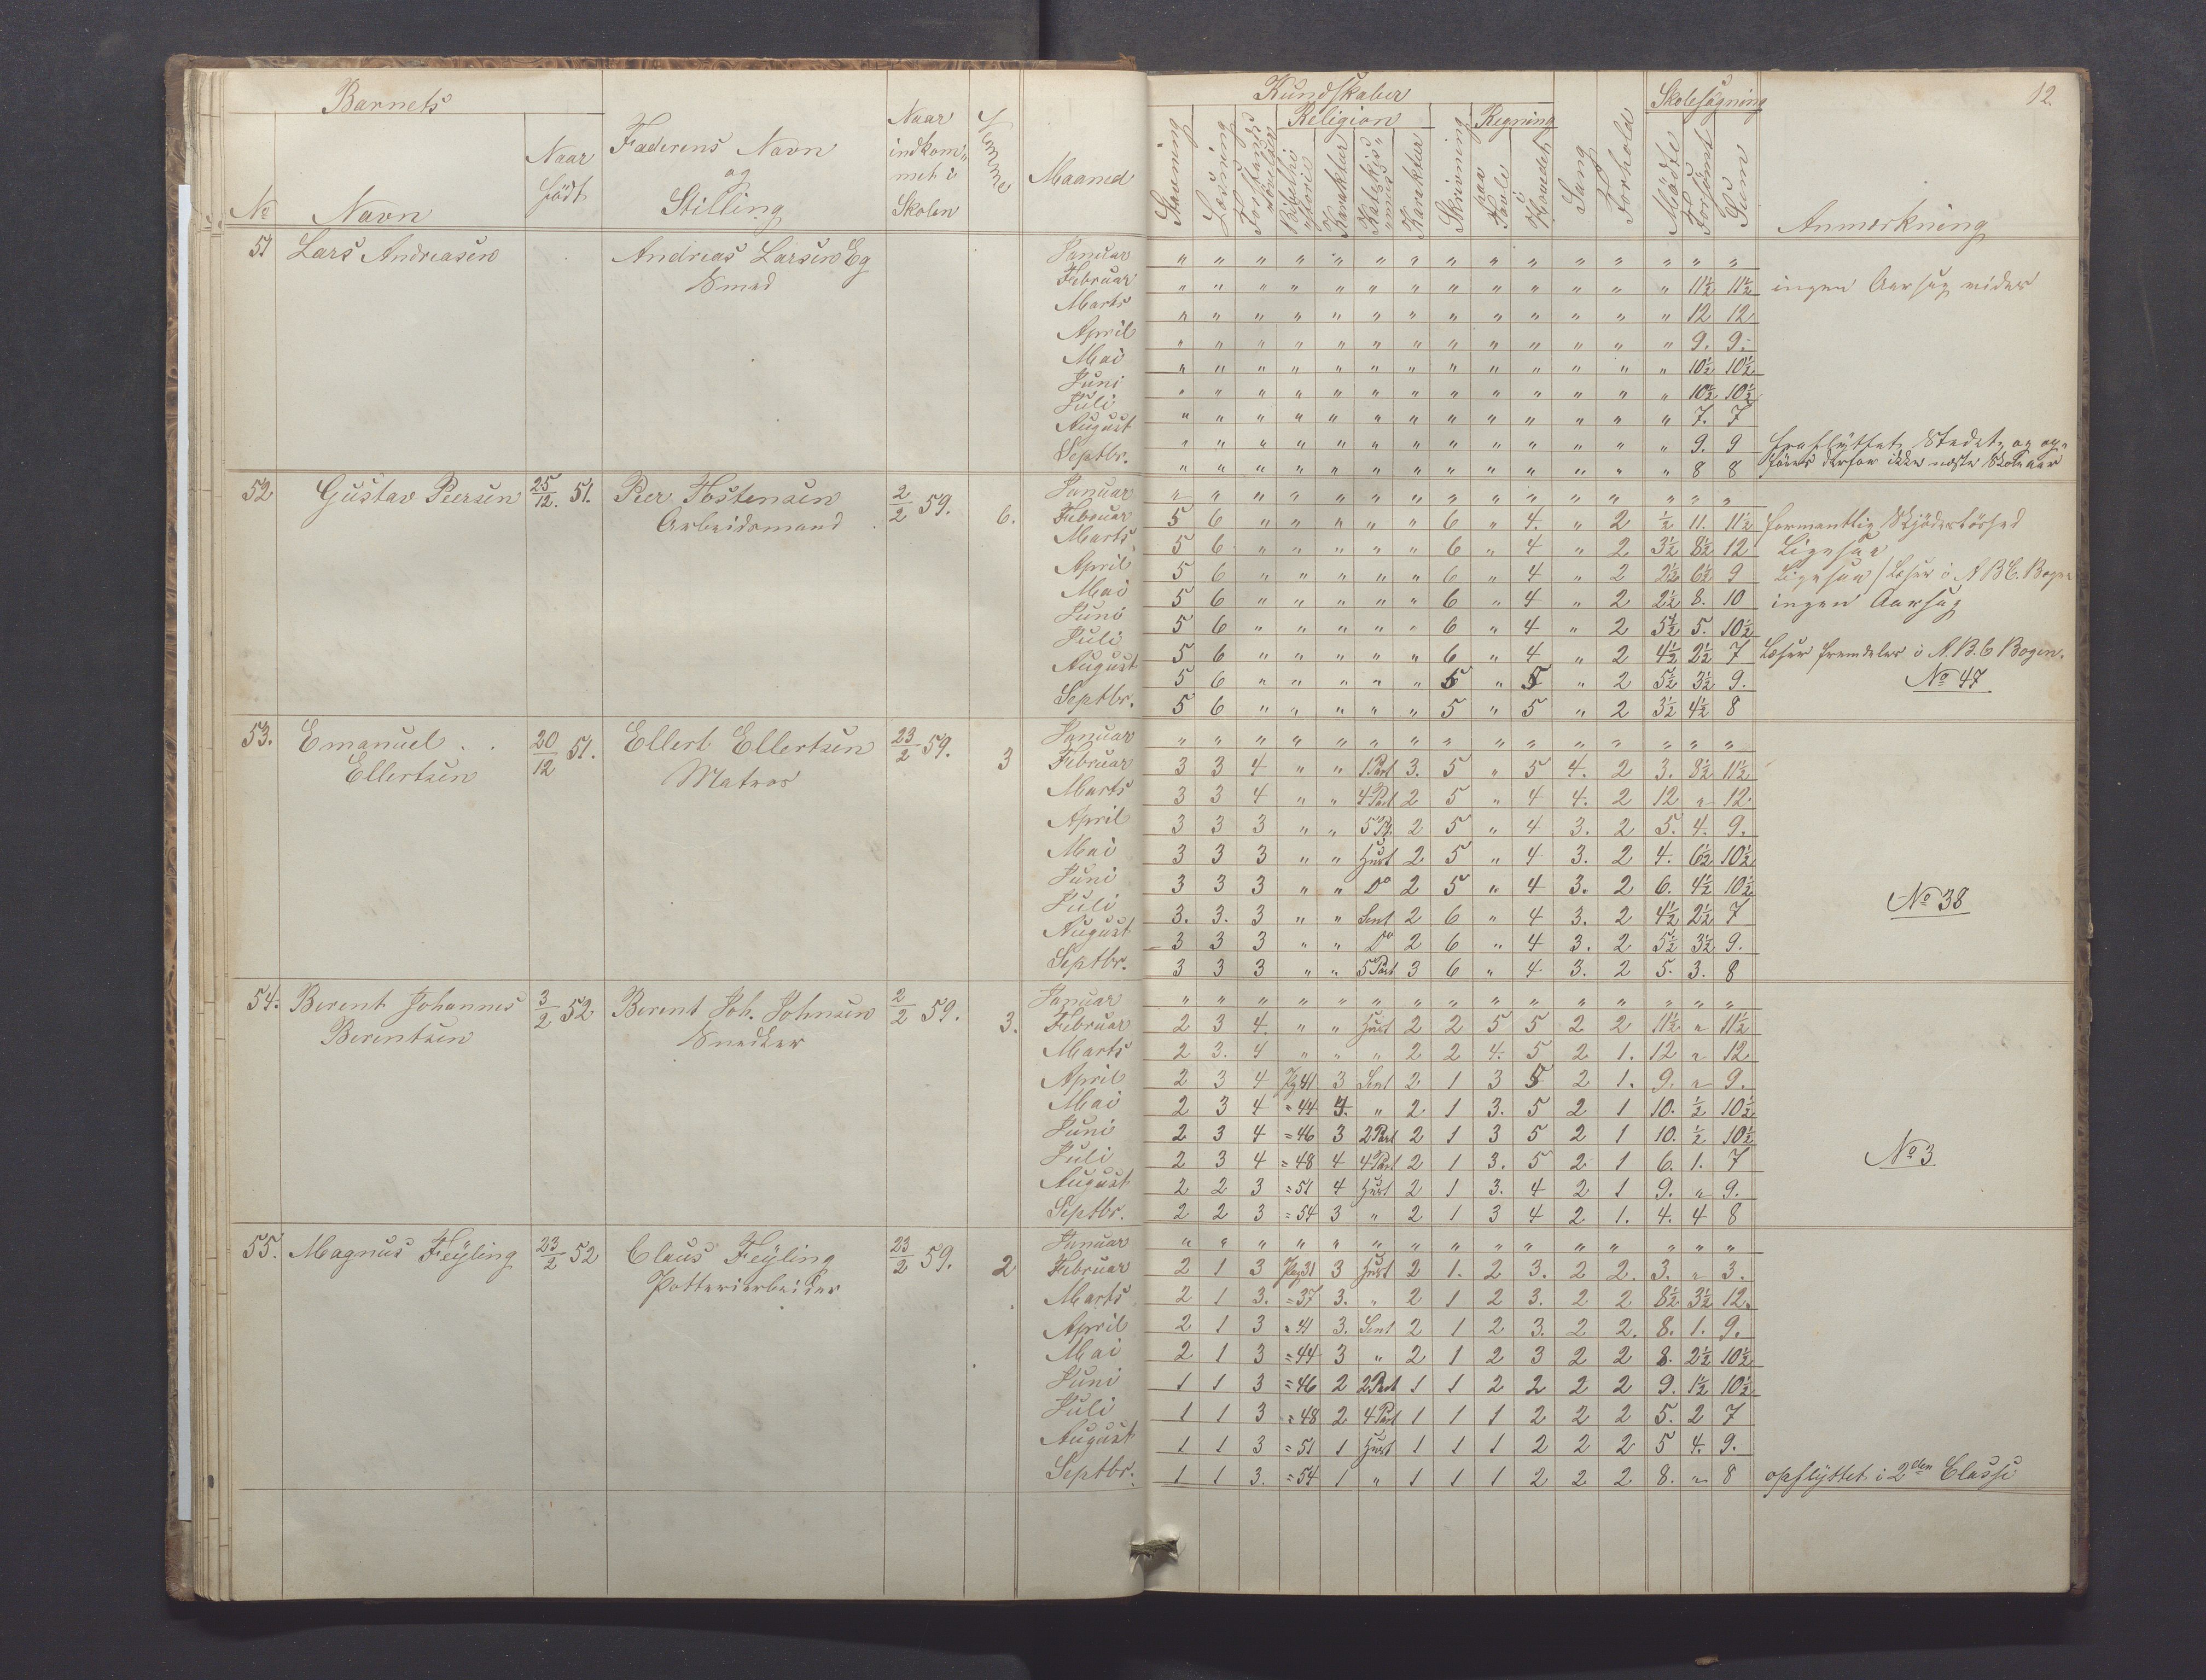 12.
Barnets
№ Navn Naar födt
Faderens Navn og Stilling
Naar indkommet i Skolen
Maaned
Kundskaber
Stavning Læsning Religion Karakter Karakter Skrivning Regning paa Tavle Hovedet Sang Forhold
Skolesøgning
Mødte Forsømt Sum
Anmerkning
51 Lars Andreasen Andreas Larsen Eg
Smed
Januar " " " " " " " " " " " " " " "
Februar " " " " " " " " " " " " " 11½ 11½ ingen Aarsag
Marts " " " " " " " " " " " " " 12 12
April " " " " " " " " " " " " " 9. 9.
Mai " " " " " " " " " " " " " 10½ 10½
Juni " " " " " " " " " " " " " 10½ 10½
Juli " " " " " " " " " " " " " 7. 7
August " " " " " " " " " " " " " 9. 9 fraflyttet Stedet og op-
Septbr. " " " " " " " " " " " " " 8 8 føres derfor ikke næste Skoleaar
52 Gustav Peersen 25/12. 51. Peer Tostensen 2/2 59. 6.
Arbeidsmand
Januar " " " " " " " " " " " " " " "
Februar 5 6 " " " " " 6 " 4. " 2 ½ 11. 11½
Marts 5 6 " " " " " 6 " 4 " 2 3½ 8½ 12 Ligesaa
April 5 6 " " " " " 6 " 4 " 2 2½ 6½ 9 Ligesaa / Læser i ABC. Bogen
Mai 5 6 " " " " " 6 " 4 " 2 2½ 8. 10 ingen Aarsag
Juni 5 6 " " " " " 6 " 4 " 2 5½ 5. 10½
Juli 5 6 " " " " " 6 " 4 " 2 4½ 2½ 7 Læser fremdeles i A.B.C Bogen.
August 5 6 " " " " " 5 " 5 " 2 5½ 3½ 9. № 47
Septbr. 5 6 " " " " " 5 " 5 " 2 3½ 4½ 8
53. Emanuel Ellertsen 20/12 51. Ellert Ellertsen 23/2 59. 3
Matros
Januar " " " " " " " " " " " " " " "
Februar 3 3 4 " " 1.Part 3. 5 " 5 4. 2 3. 8½ 11½
Marts 3 3 4 " " 4 Part 2 5 " 4 4. 2 12 " 12
April 3 3 3 " " 5 P. 2 5 " 4 3. 2 5. 4. 9.
Mai 3 3 3 " " Hust 2 5 " 4 3. 2 4. 6½ 10½
Juni 3 3 3 " " Do 2 5 " 4 3. 2 6. 4½ 10½
Juli 3. 3. 3 " " Sent 2 6 " 4 3. 2 4½ 2½ 7 № 38
August 3 3 3 " " Do 2 6 " 4 3. 2 5½ 3½ 9.
Septbr. 3 3 3 " " 5 Part 3 6 " 4 3. 2 5. 3. 8
54. Berent Johannes Berentsen 3/2 52 Berent Joh. Johnsen 2/2 59. 3.
Snedker
Januar " " " " " " " " " " " " " " "
Februar 2 3 4. " " Hust 2 2 5 5 2 2 11½ " 11½
Marts 2 3. 4 " " " 2 2 4. 5 2 1. 12 " 12
April 2 3 4 Pg 41 3 Sent 2 1 3 5 2 1. 9. " 9.
Mai 2 3 4 = 44 4. " 2 1 3. 5 2 1 10. ½ 10½
Juni 2 3 4 = 46 3 2 Part 2 1 3 5 2 1 10. ½ 10½
Juli 2 3 4 = 48 4 4 Part 2 1 3. 5 2 1 6. 1. 7 № 3
August 2 2 3 = 51 4 Hust 2 1 3. 4 2 1 9. " 9.
Septbr. 2 2 3 = 54 3 " 2 1 3 4 2 1. 4. 4 8
55. Magnus Feÿling 23/2 52 Claus Feÿling 23/2 59. 2
Potteriarbeider
Januar " " " " " " " " " " " " " " "
Februar 2 1 3 Pag 31 3 Hust 2 1. 2 3. 2 2. 3. " 3.
Marts 2 1 3. = 37 3. " 2 1 2 3. 2 2 8½ 3½ 12.
April 2 1 3 = 41 3. Sent 2 1 2 3. 2 2. 8. 1. 9.
Mai 2 1 3 = 44 3 " 2 1 2 3 2 2 8. 2½ 10½
Juni 1 1 3 = 46 2 2 Part 1 1 2 2 2 2 9. 1½ 10½
Juli 1 1 3 = 48 2 4 Part 1 1 1 2 2 2 5. 2 7
August 1 1 3 = 51 1 Hust 1 1 1 2 2 2 5 4. 9.
Septbr. 1 1 3. = 54 1 " 1 1 1 2 2 2 8. " 8 opflyttet i 2den Classe